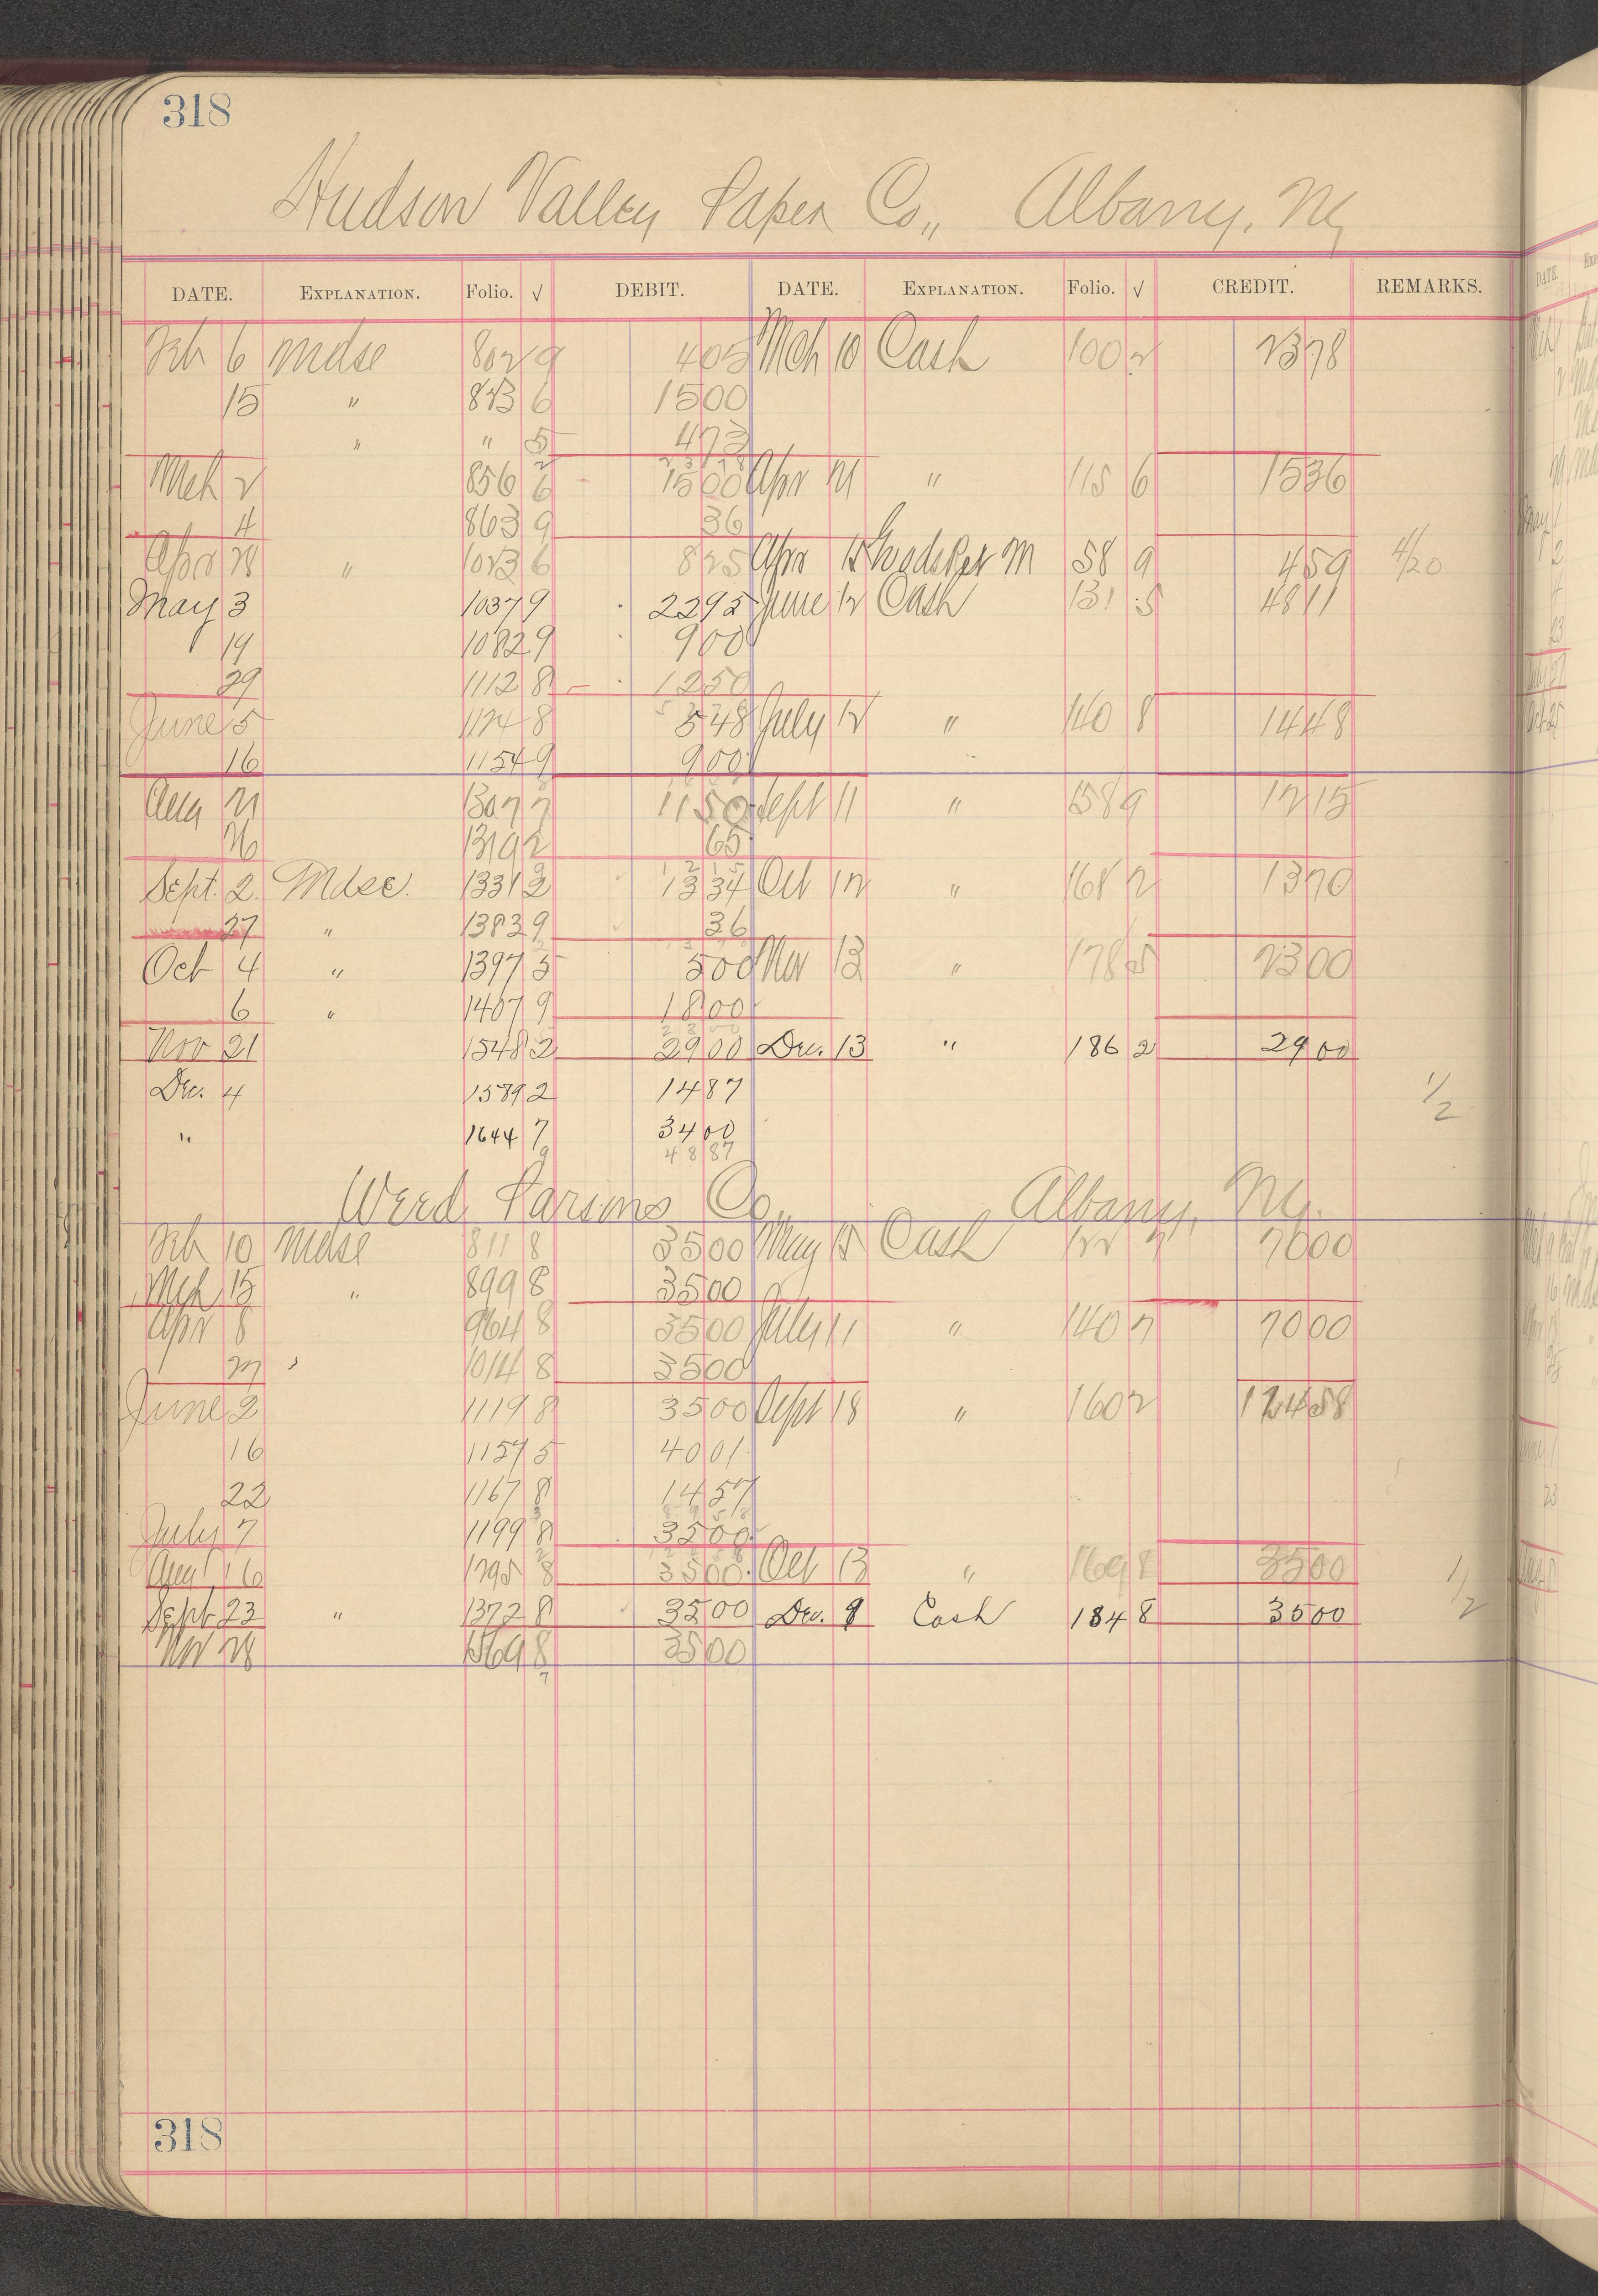 318
Hudson Valley Paper Co,, Albany, Ny
DATE. EXPLANATION. Folio. √ DEBIT. DATE. EXPLANATION. Folio. √ CREDIT. REMARKS.
Feb 6 Mdse 802 9 405 Mch 10 Cash 100 2 2378
15 " 823 6 1500
" " 5 473
2378
Mch 2 856 6 1500 Apr 21 " 115 6 1536
4 863 9 36
Apr 28 " 1023 6 825 Apr 15 Goods Ret M 58 9 459 4/20
May 3 1037 9 2295 June 12 Cash 131 5 4811
19 1082 9 900
29 1112 8 1250
June 5 1124 8 548 July 12 " 140 8 1448
16 1154 9 900
Aug 21 1307 7 1150 Sept 11 " 158 9 1215
26 1319 2 65
1215
Sept. 2 Mdse. 1331 2 1334 Oct 12 " 168 2 1370
27 " 1383 9 36
Oct 4 " 1397 5 500 Nov 13 " 178 5 2300
6 " 1407 9 1800
2300
Nov 21 1548 2 2900 Dec. 13 " 186 2 2900
Dec. 4 1589 2 1487 1/2
" 1644 7 3400
9 4887
Weed Parsons Co. Albany, Ny.
Feb 10 Mdse 811 8 3500 May 15 Cash 122 7 7000
Mch 15 " 899 8 3500
Apr 8 964 8 3500 July 11 " 140 7 7000
27 " 1014 8 3500
June 2 1119 8 3500 Sept 18 " 160 2 12458
16 1157 5 4001
22 1167 8 1457
8958
July 7 1199 8 3500
Aug 16 1295 8 3500 Oct 13 " 169 8 3500 1/2
Sept 23 " 1372 8 3500 Dec. 9 Cash 184 8 3500
Nov 28 1569 8 3500
7
318